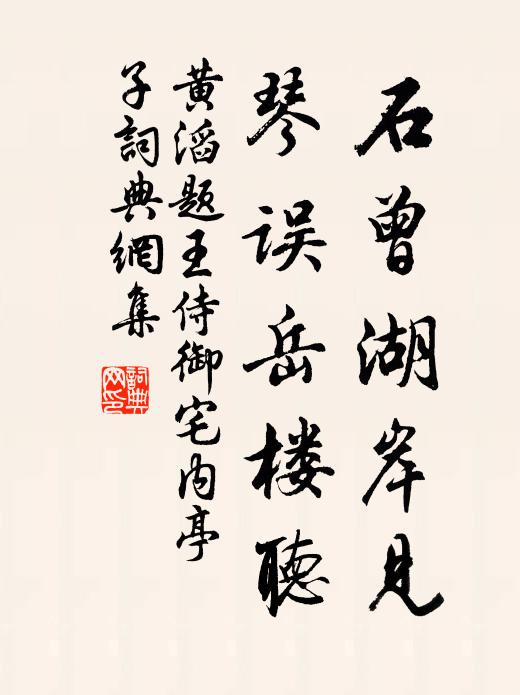 石曾湖岸见
琴误岳楼聴
黄滔题王侍御宅内亭
子詞典網集
詞典網印